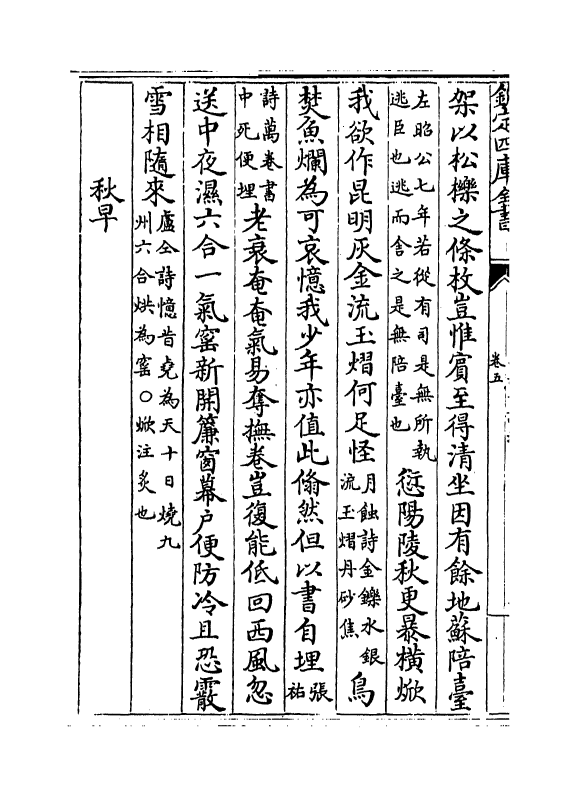 欽定四庫全書
卷五
架以松櫟之條枚豈惟賓至得清坐因有餘地蘇陪臺
左昭公七年若從有司是無所執
逃臣也逃而舍之是無陪臺也
愆陽陵秋更暴橫焮
我欲作昆明灰金流玉熠何足怪
月蝕詩金鑠水銀
流玉熠丹砂焦
鳥
焚魚爛為可哀憶我少年亦值此翛然但以書自埋
張
祐
詩萬卷書
中死便埋
老衰奄奄氣易奪撫卷豈復能低回西風忽
送中夜濕六合一氣窰新開簾窗幕户便防冷且恐霰
雪相隨來
盧仝詩憶昔堯為天十日燒九
州六合烘為窰○焮注炙也
秋早